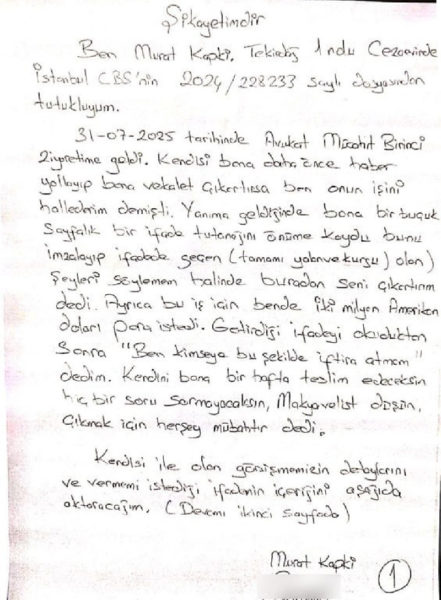 Şikayetimdir
Ben Murat Kapki. Tekirdağ 1 nolu Cezaevinde
İstanbul CBS'nin 2024/228233 sayılı dosyasından
tutukluyum.
31-07-2025 tarihinde Avukat Mücahit Birinci
ziyretime geldi. Kendisi bana daha önce haber
yollayıp bana vekalet çıkartırsa ben onun işini
hallederim demişti. Yanıma geldiğinde bana bir buçuk
sayfalık bir ifade tutanağını önüme koydu bunu
imzalayıp ifadede geçen (tamamı yalan ve kurgu) olan)
şeyleri söylemem halinde buradan seni çıkartırım
dedi. Ayrıca bu iş için bende iki milyon Amerikan
doları para istedi. Getirdiği ifadeyi okuduktan
sonra "Ben kimseye bu şekilde iftira atmam"
dedim. Kendini bana bir hafta teslim edeceksin
hiç bir soru sormayacaksın, Makyavelist düşün,
çıkmak için herşey mübahtır dedi.
Kendisi ile olan görüşmemizin detaylarını
ve vermemi istediği ifadenin içeriğini aşağıda
aktaracağım. (Devamı ikinci sayfada)
Murat Kapki
1